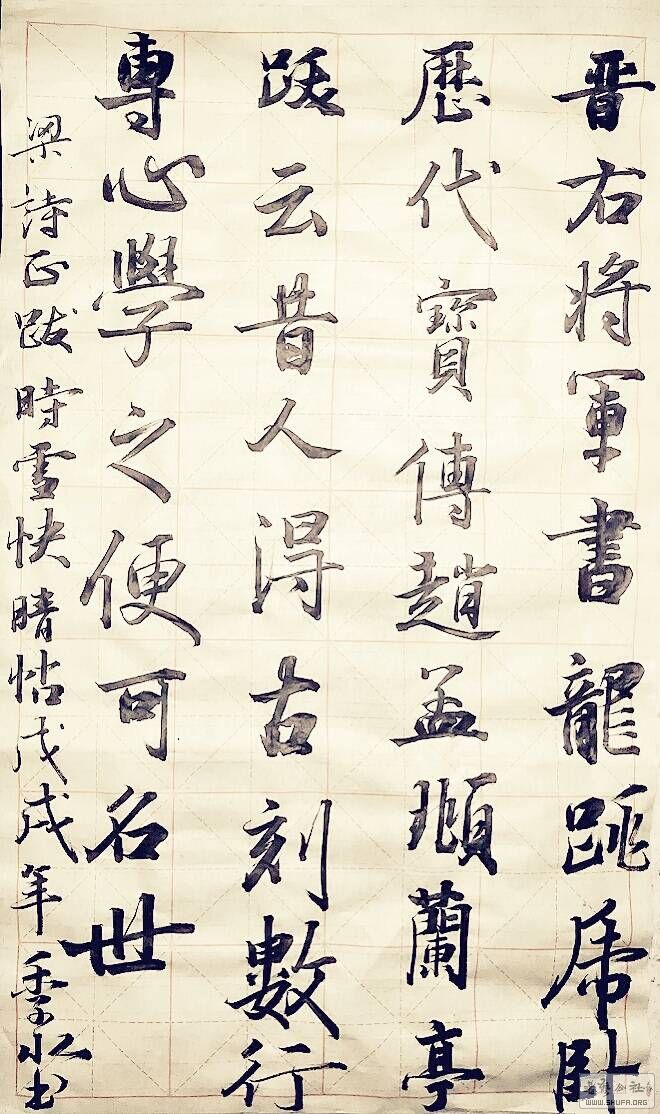 晋右将軍書龍跳虎卧
歷代寶傳趙孟頫蘭亭
跋云昔人得古刻數行
專心學之便可名世
梁詩正跋時雪快晴帖戊戌年季水书
WWW.SHUFA.ORG